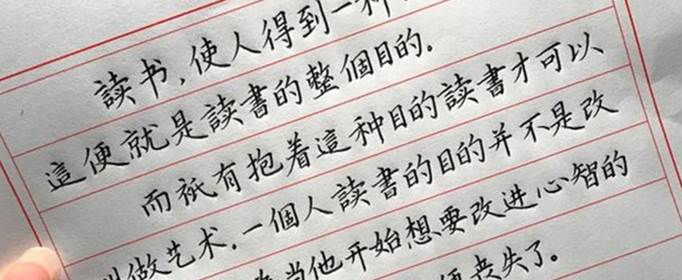 讀书,使人得到一种
這便就是讀書的整個目的。
而祇有抱着這種目的讀書才可以
叫做艺术.一個人讀書的目的并不是改
當他开始想要改进心智的
便丧失了。